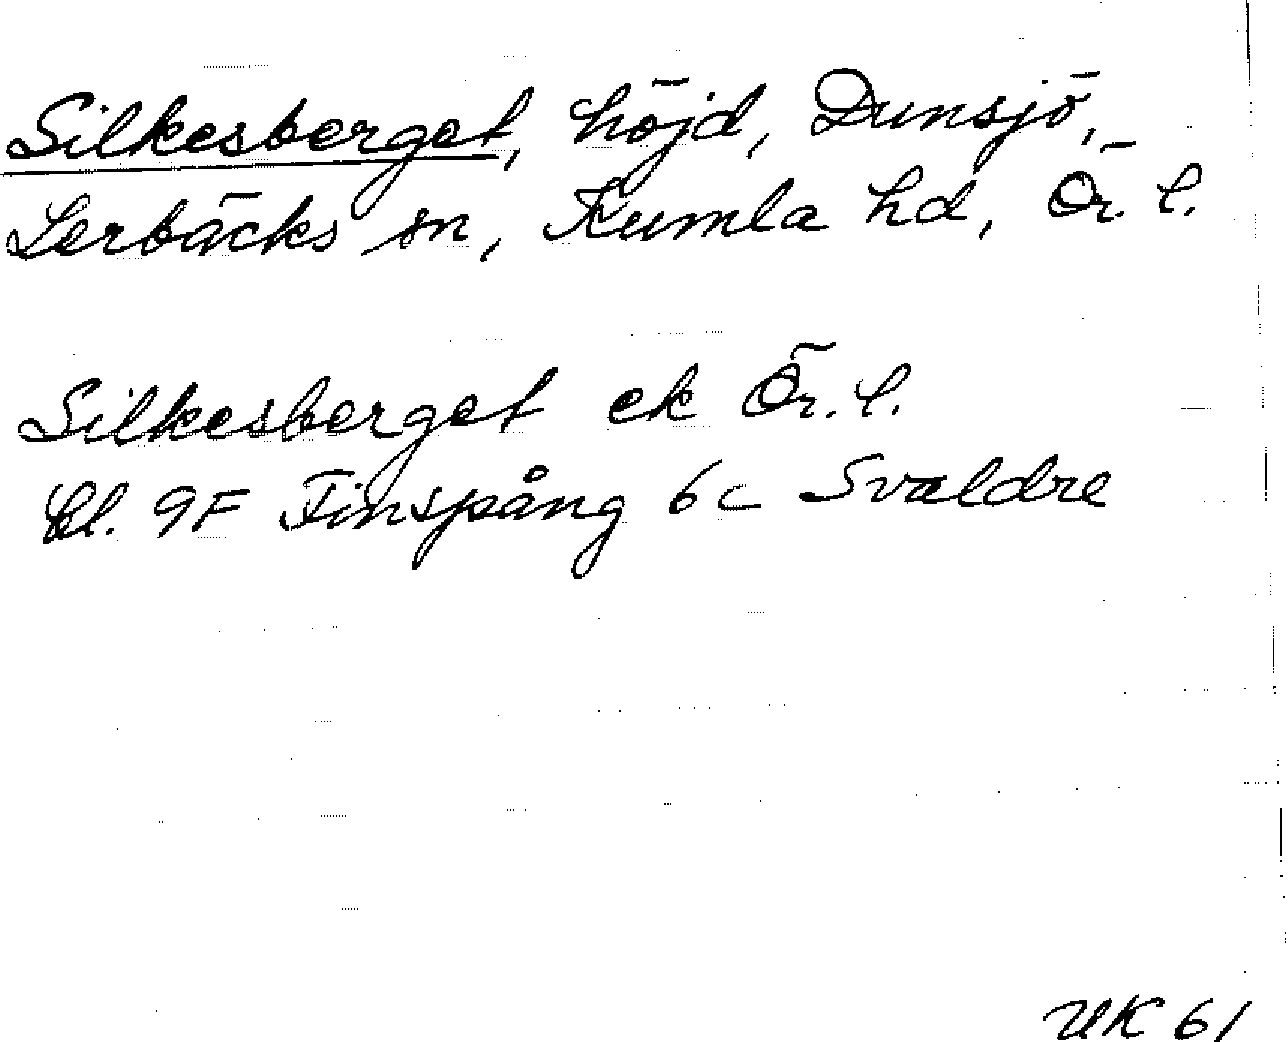 Silkesberget, höjd, Dunsjö,
Lerbäcks sn, Kumla hd, Ör. l.
Silkesberget ek Ör. l.
Bl. 9F Finspång 6c Svaldre
UK 61